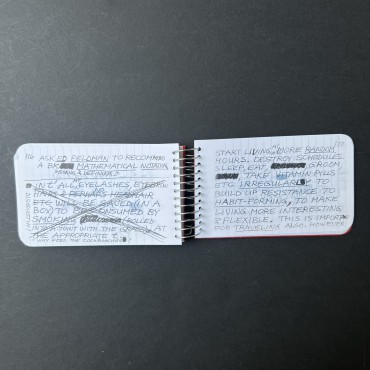 116
ASK ED FELDMAN TO RECOMMEND
A BK MATHEMATICAL NOTATION,
INT ALL, EYELASHES,
HAIRS & PERHAPS HEADHAIR
ETC WILL BE SAVED (IN A
BOX) TO BE CONSUMED BY
SMOKING ROLLED
IN A JOINT WITH THE GRASS AT
THE APPROPRIATE
117
START LIVING MORE RANDOM
HOURS. DESTROY SCHEDULES.
SLEEP, EAT, GROOM
TAKE VITAMIN PILLS
ETC IRREGULAR
BUILD UP RESISTANCE TO
HABIT-FORMING, TO MAKE
LIVING MORE INTERESTING
& FLEXIBLE. THIS IS
FOR TRAVELING ALSO, HOWEVER